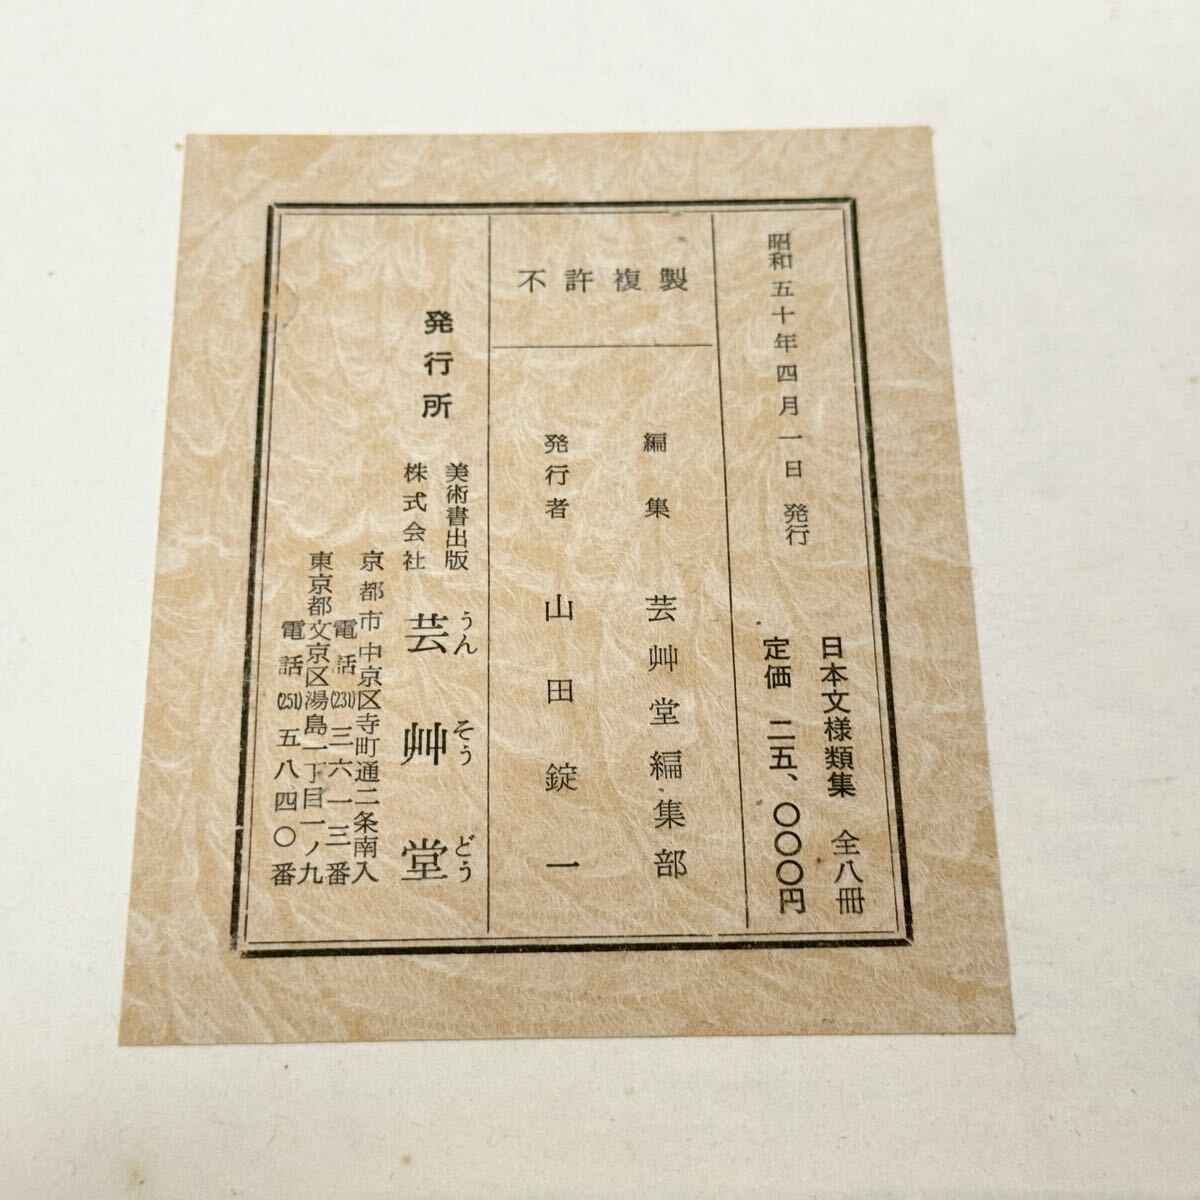 昭和五十年四月一日 発行
日本文様類集 全八冊
定価 二五、〇〇〇円
不許複製
編集 芸艸堂編集部
発行者 山田錠一
発行所
美術書出版
株式会社
芸艸堂
うんそうどう
京都市中京区寺町通二条南入
電話(231)三六一三番
東京都文京区湯島一丁目一ノ九
電話(251)五八四〇番